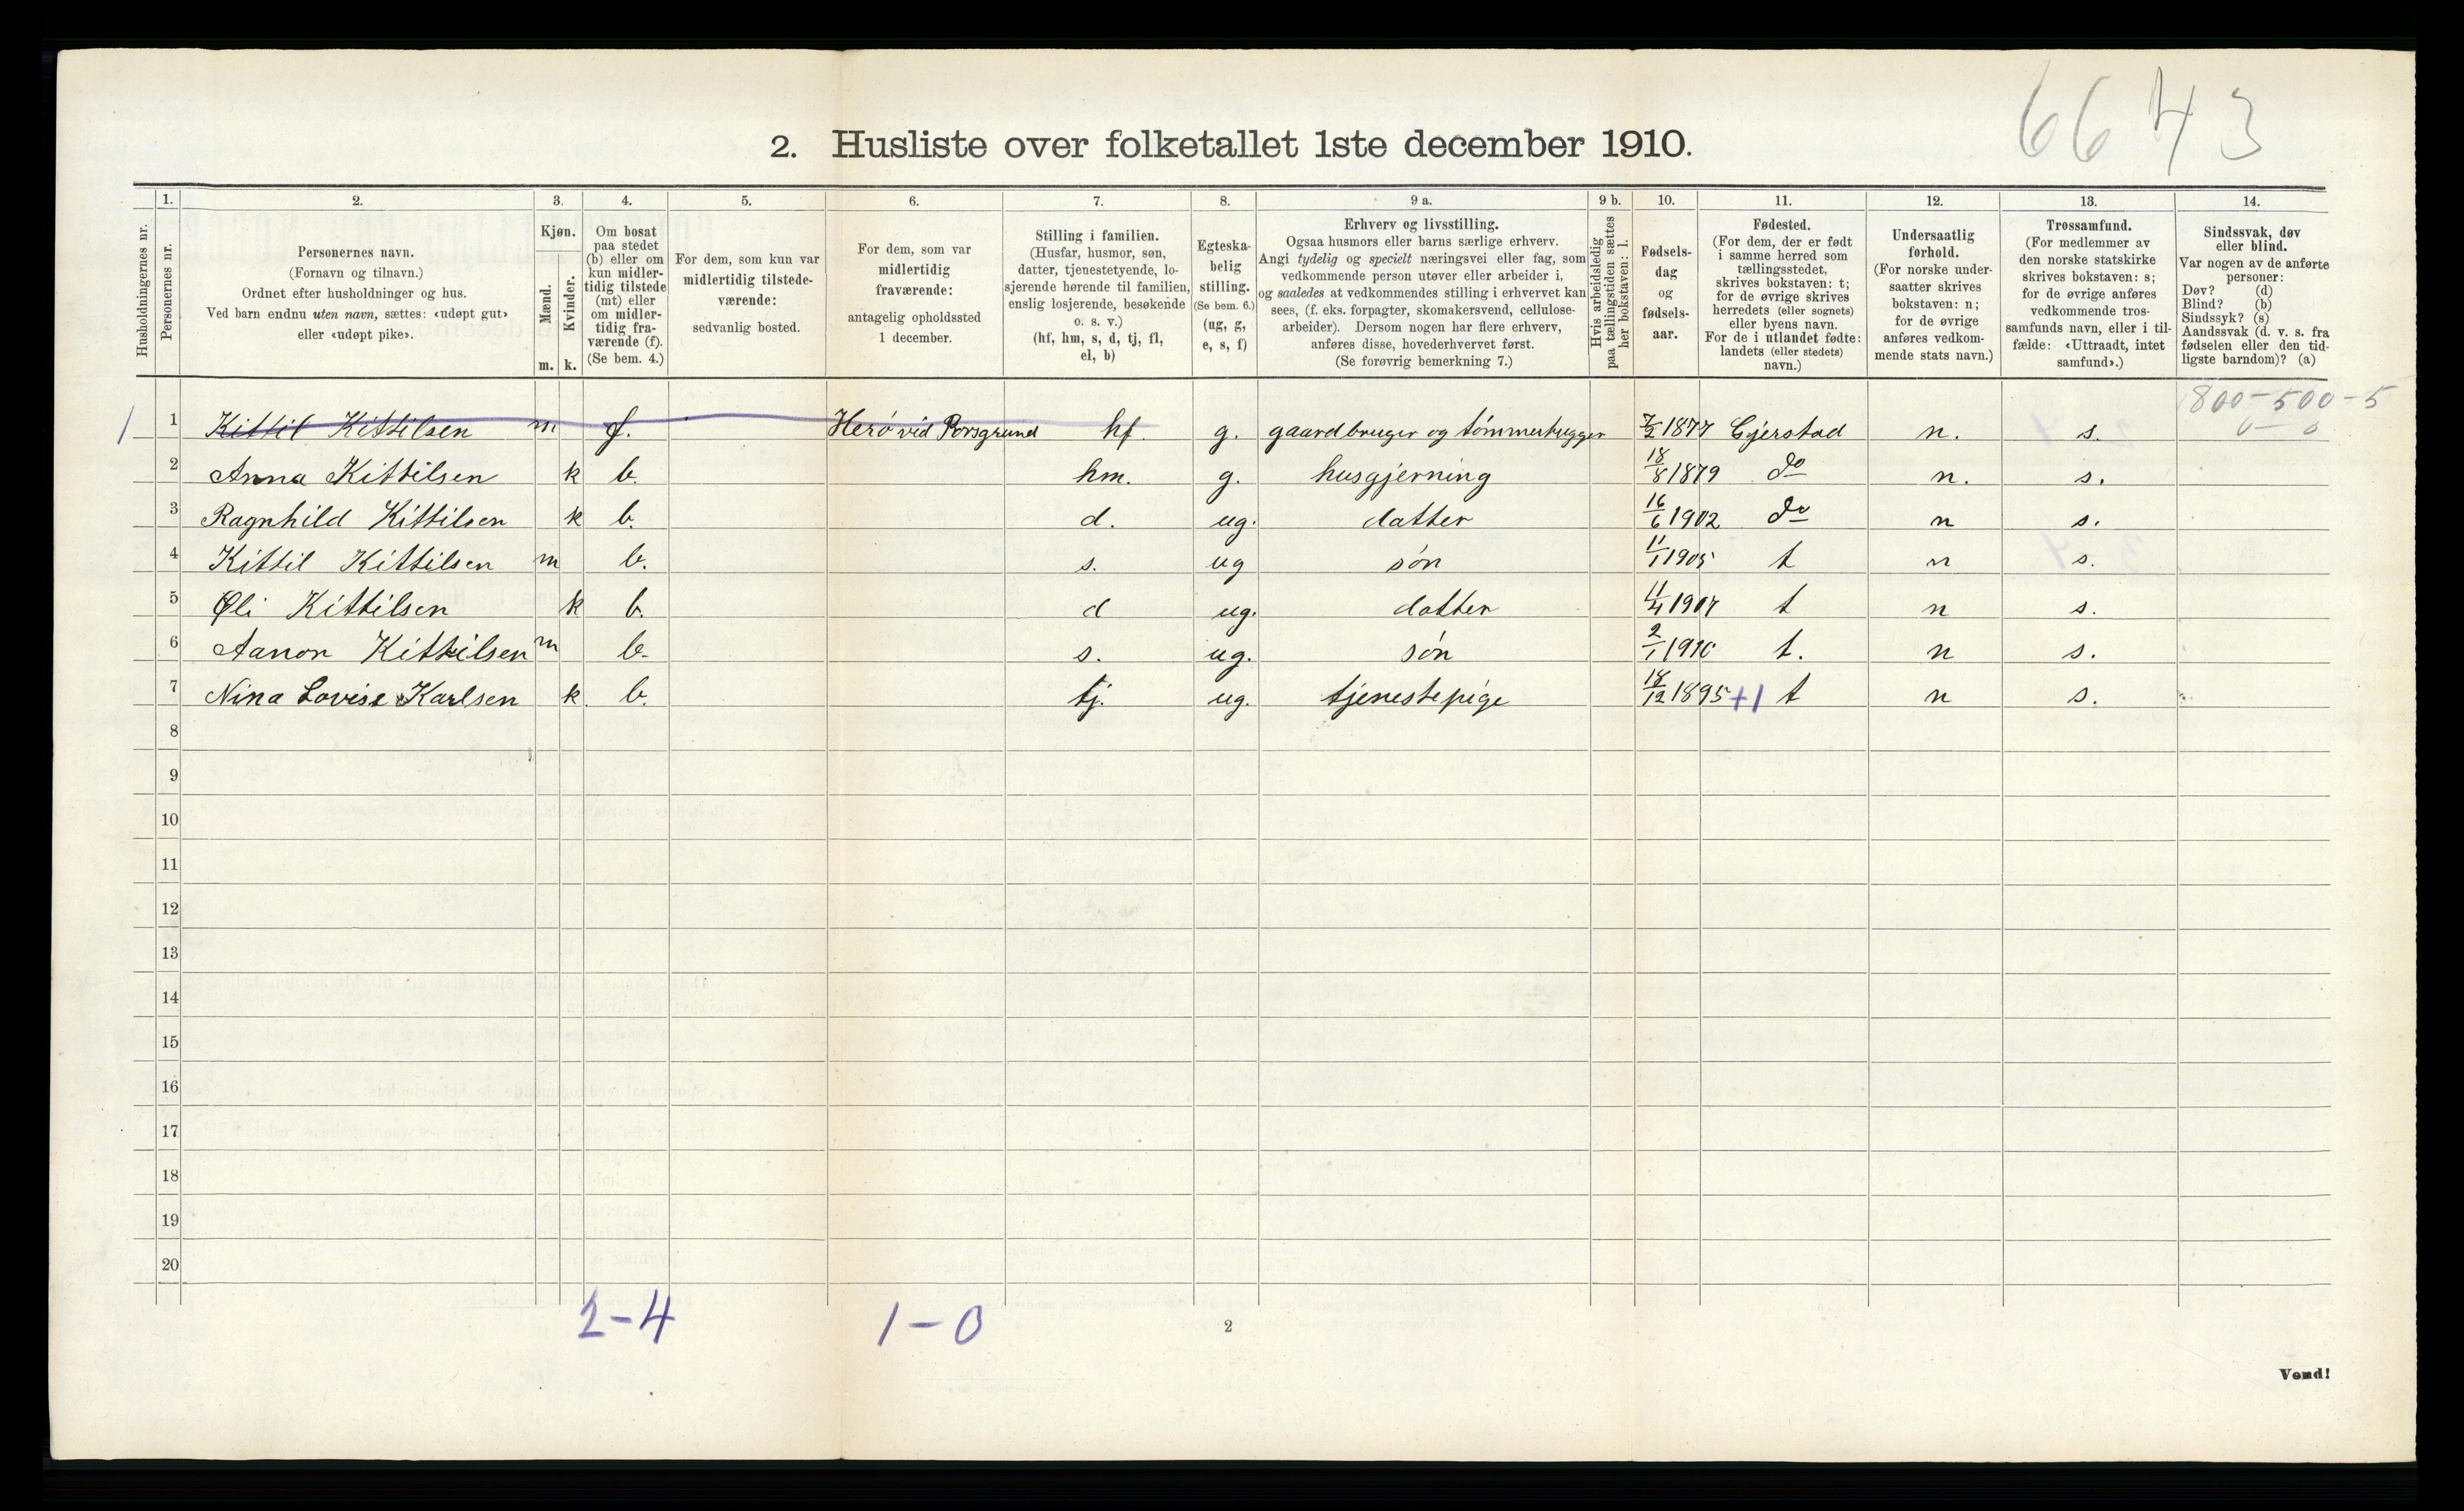 6643
2. Husliste over folketallet 1ste december 1910.
Husholdningernes nr.
1.
Personernes nr.
2.
Personernes navn.
(Fornavn og tilnavn.)
Ordnet efter husholdninger og hus.
Ved barn endnu uten navn, sættes: «udøpt gut»
eller «udøpt pike».
3.
Kjøn.
Mænd.
Kvinder.
m. k.
4.
Om bosat
paa stedet
(b) eller om
kun midler-
tidig tilstede
(mt) eller
om midler-
tidig fra-
værende (f).
(Se bem. 4.)
5.
For dem, som kun var
midlertidig tilstede-
værende:
sedvanlig bosted.
6.
For dem, som var
midlertidig
fraværende:
antagelig opholdssted
1 december.
7.
Stilling i familien.
(Husfar, husmor, søn,
datter, tjenestetyende, lo-
sjerende hørende til familien,
enslig losjerende, besøkende
o. s. v.)
(hf, hm, s, d, tj, fl,
el, b)
8.
Egteska-
belig
stilling.
(Se bem. 6.)
(ug, g,
e, s, f)
9 a.
Erhverv og livsstilling.
Ogsaa husmors eller barns særlige erhverv.
Angi tydelig og specielt næringsvei eller fag, som
vedkommende person utøver eller arbeider i,
og saaledes at vedkommendes stilling i erhvervet kan
sees, (f. eks. forpagter, skomakersvend, cellulose-
arbeider). Dersom nogen har flere erhverv,
anføres disse, hovederhvervet først.
(Se forøvrig bemerkning 7.)
9 b.
Hvis arbeidsledig
paa tællingstiden sættes
her bokstaven: l.
10.
Fødsels-
dag
og
fødsels-
aar.
11.
Fødested.
(For dem, der er født
i samme herred som
tællingsstedet,
skrives bokstaven: t;
for de øvrige skrives
herredets (eller sognets)
eller byens navn.
For de i utlandet fødte:
landets (eller stedets)
navn.)
12.
Undersaatlig
forhold.
(For norske under-
saatter skrives
bokstaven: n;
for de øvrige
anføres vedkom-
mende stats navn.)
13.
Trossamfund.
(For medlemmer av
den norske statskirke
skrives bokstaven: s;
for de øvrige anføres
vedkommende tros-
samfunds navn, eller i til-
fælde: «Uttraadt, intet
samfund».)
14.
Sindssvak, døv
eller blind.
Var nogen av de anførte
personer:
Døv? (d)
Blind? (b)
Sindssyk? (s)
Aandssvak (d. v. s. fra
fødselen eller den tid-
ligste barndom)? (a)
800-500-5
0-0
1 1 Kittil Kittilsen m f. Herö vid Porsgrund hf. g. gaardbruger og tömmerhugger 7/2 1877 Gjerstad n. s.
2 Anna Kittilsen k b. hm. g. husgjerning 18/8 1879 do n. s.
3 Ragnhild Kittilsen k b. d. ug. datter 16/6 1902 do n s.
4 Kittil Kittilsen m b. s. ug søn 11/1 1905 t n s.
5 Øli Kittilsen k b. d ug. datter 11/4 1907 t n s.
6 Aanon Kittilsen m b. s. ug. søn 2/1 1910 t. n s.
7 Nina Lovise Karlsen k. b. tj. ug. tjenestepige 18/12 1895 +1 t n s.
8
9
10
11
12
13
14
15
16
17
18
19
20
2-4 1-0
2
Vend!